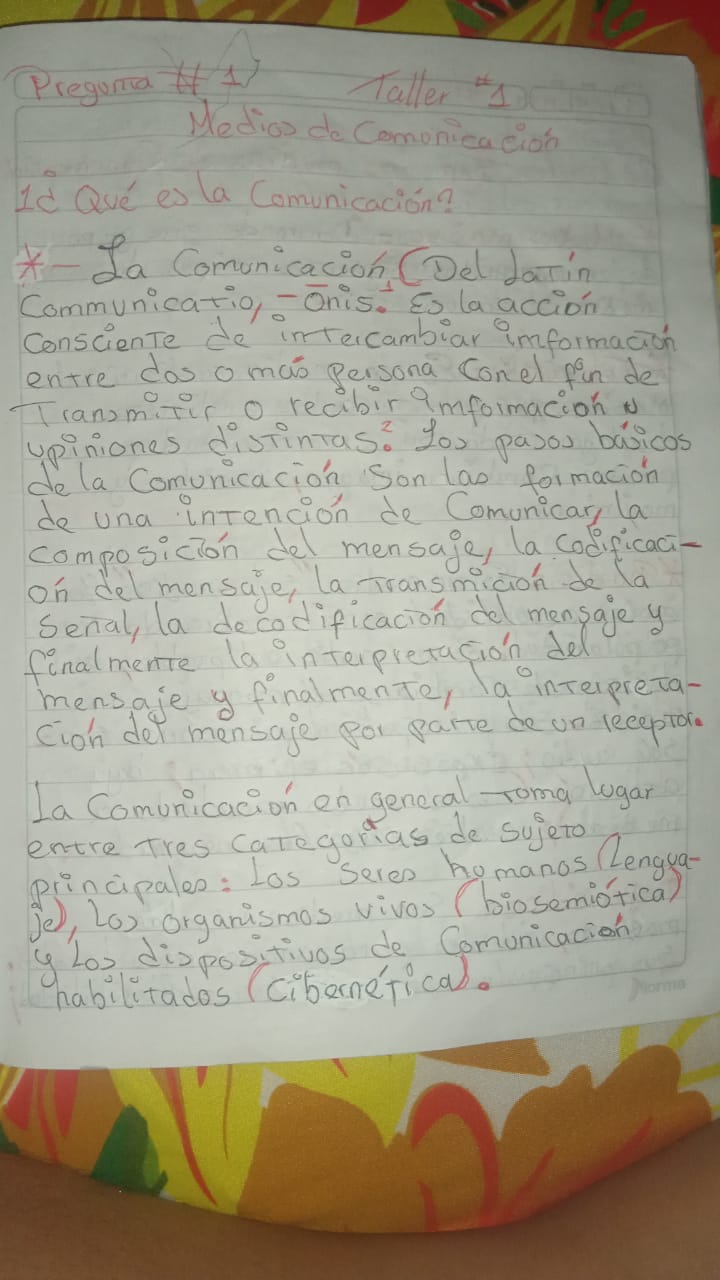 Pregunta # 1 Taller #1
Medios de Comonicación
1¿ Qué es la Comunicación?
*- La Comunicación (Del Latín
Communicatio, -Onis.¹ Es la acción
consciente de intercambiar información
entre dos o más persona con el fin de
Transmitir o recibir información u
upiniones distintas.² Los pasos básicos
de la Comunicación Son las formación
de una intención de Comunicar, la
composición del mensaje, la codificaci-
ón del mensaje, la transmición de la
Señal, la decodificación del mensaje y
finalmente la interpretación del
mensaje y finalmente, la interpreta-
ción del mensaje por parte de un receptor.
La Comunicación en general toma lugar
entre tres categorías de sujeto
principales: Los seres homanos (Lengua-
je), Los organismos vivos (biosemiótica)
y Los dispositivos de Comunicación
habilitados (Cibernética).
Norma